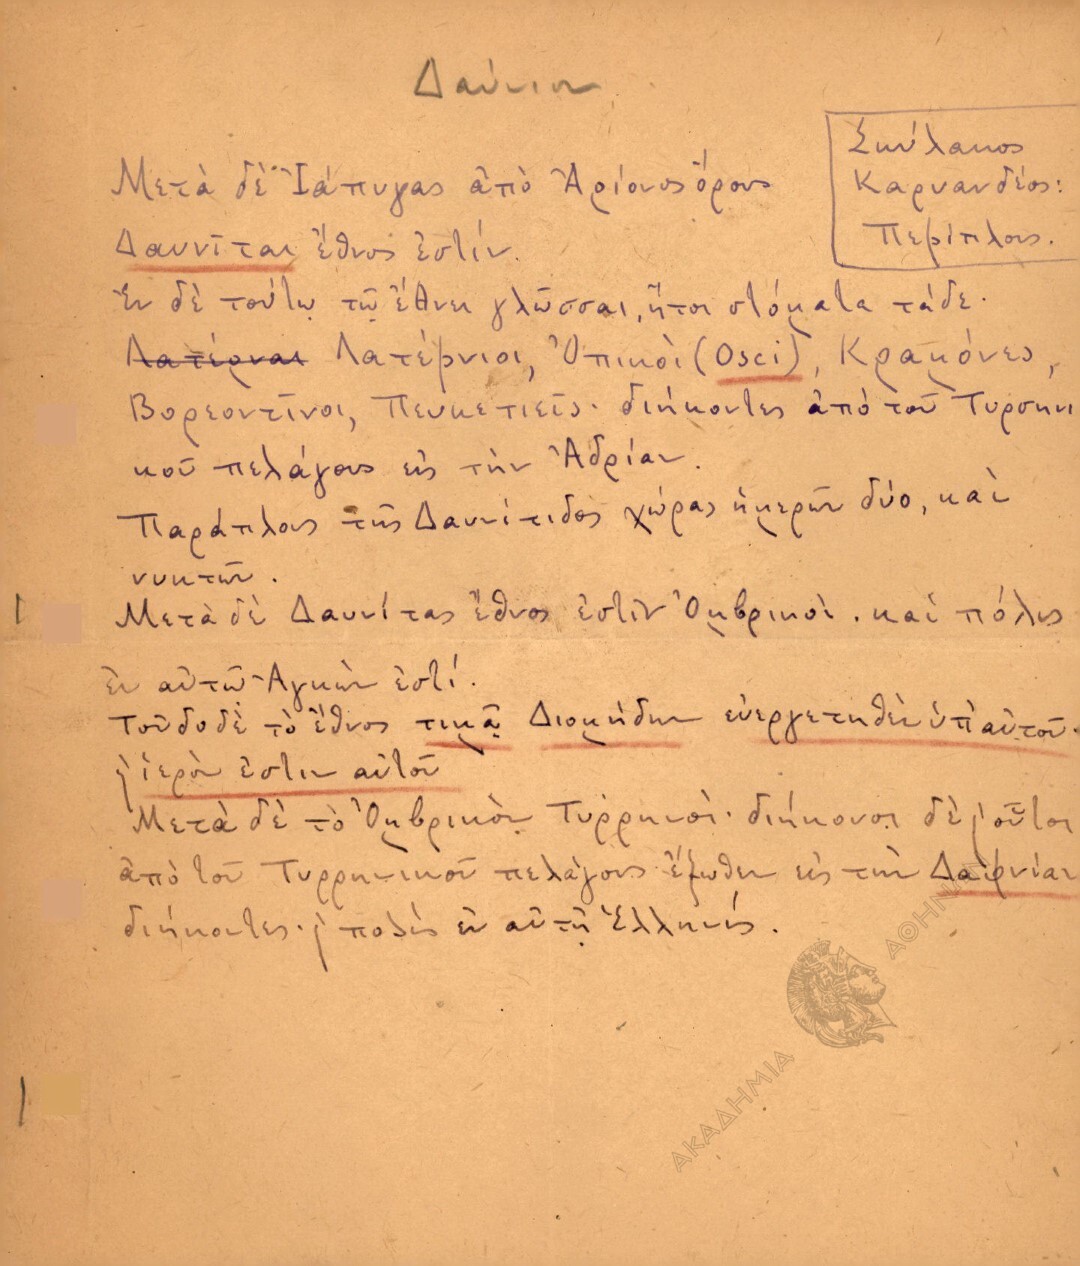 Δαύνιοι
Σκύλακος
Καρυανδέος:
Περίπλους.
Μετὰ δὲ Ἰάπυγας ἀπὸ Ἀρίονος ὄρους
Δαυνῖται ἔθνος ἐστίν.
Ἐν δὲ τούτῳ τῷ ἔθνει γλῶσσαι, ἤτοι στόματα τάδε·
Λατέρναι Λατέρνιοι, Ὀπικοὶ (Osci), Κρακόνες,
Βορεοντῖνοι, Πευκετιεῖς· διήκοντες ἀπὸ τοῦ Τυρσηνι
κοῦ πελάγους εἰς τὴν Ἀδρίαν.
Παράπλους τῆς Δαυνίτιδος χώρας ἡμερῶν δύο, καὶ
νυκτῶν.
Μετὰ δὲ Δαυνίτας ἔθνος ἐστὶν Ὀμβρικοὶ. καὶ πόλις
ἐν αὐτῷ Ἀγκὼν ἐστί.
Τοῦδο δὲ τὸ ἔθνος τιμᾷ Διομήδην εὐεργετηθὲν ὑπ' αὐτοῦ·
ϗ ἱερὸν ἐστιν αὐτοῦ
Μετὰ δὲ τὸ Ὀμβρικὸν Τυρρηνοὶ· διήκουσι δὲ ϗ οὗτοι
ἀπὸ τοῦ Τυρρηνικοῦ πελάγους ἔξωθεν εἰς τὴν Δαφνίαν
διήκοντες· ϗ πολὶς ἐν αὐτῇ Ἑλληνίς.
ΑΚΑΔΗΜΙΑ ΑΘΗΝΩΝ